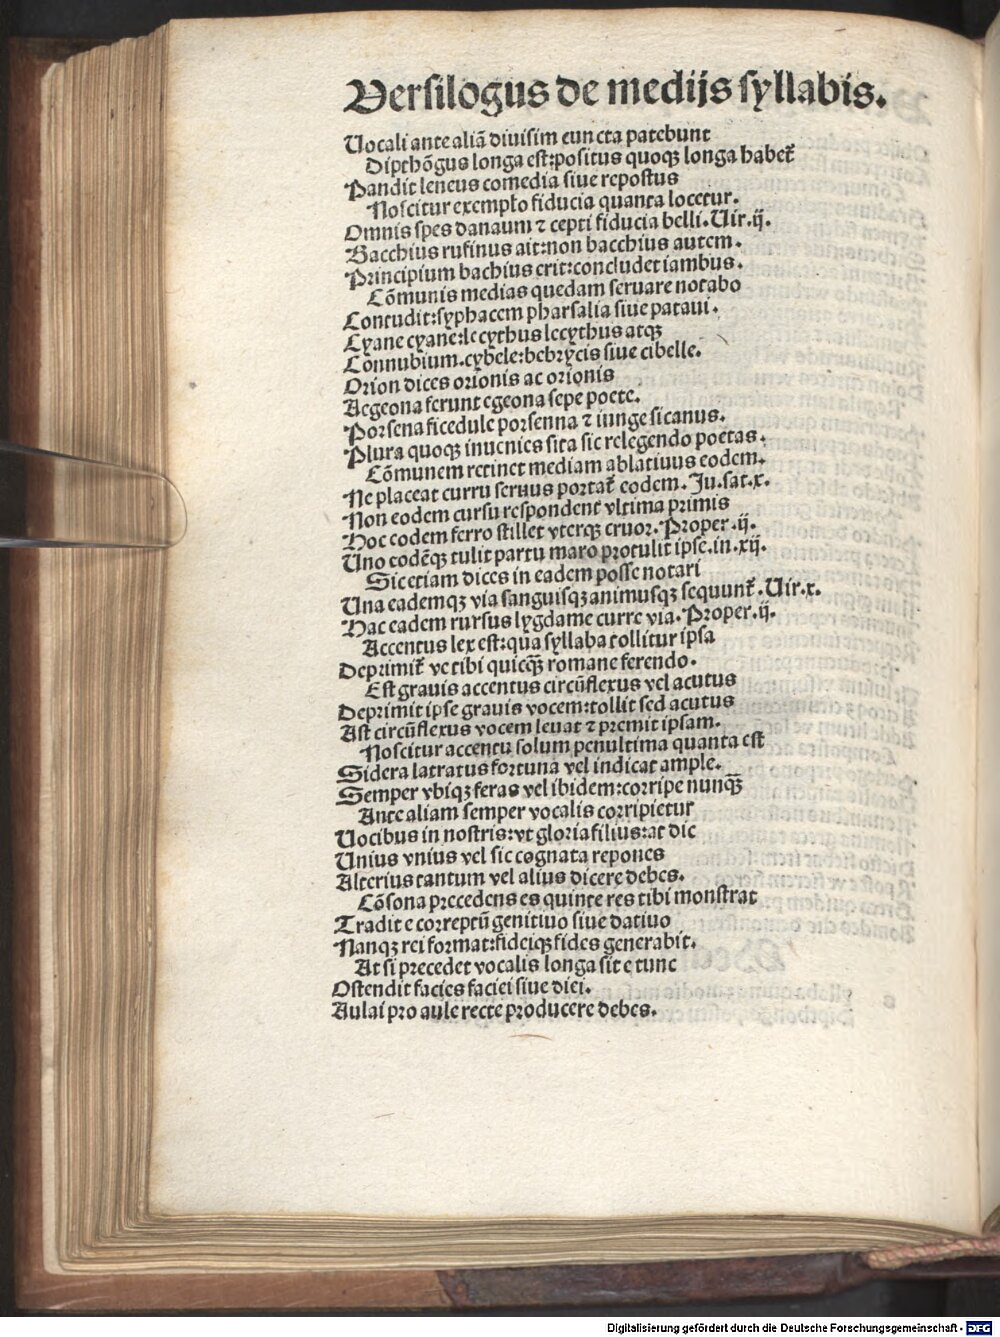 Versilogus de medijs syllabis.
Uocali ante aliā diuisim cun cta patebunt
Dipthōgus longa est:positus quoqꝫ longa habet᷑
Pandit leneus comedia siue repostus
Noscitur exemplo fiducia quanta locetur.
Omnis spes danaum ⁊ cepti fiducia belli. Uir.ij.
Bacchius rufinus ait:non bacchius autem.
Principium bachius erit:concludet iambus.
Cōmunis medias quedam seruare notabo
Contudit:syphacem pharsalia siue pataui.
Cyane cyane:lecythus lecythus atqꝫ
Connubium.cybele:bebrycis siue cibelle.
Orion dices orionis ac orionis
Aegeona ferunt egeona sepe poete.
Porsena ficedule porsenna ⁊ iunge sicanus.
Plura quoqꝫ inuenies sita sic relegendo poetas.
Cōmunem retinet mediam ablatiuus eodem.
Ne placeat curru seruus portat᷑ eodem. Ju.sat.x.
Non eodem cursu respondent vltima primis
Hoc eodem ferro stillet vterqꝫ cruor. Proper.ij.
Uno eodēqꝫ tulit partu maro protulit ipse.in.xij.
Sic etiam dices in eadem posse notari
Una eademqꝫ via sanguisqꝫ animusqꝫ sequunt᷑. Uir.x.
Hac eadem rursus lygdame curre via. Proper.ij.
Accentus lex est:qua syllaba tollitur ipsa
Deprimit᷑ ve tibi quicqꝫ̄ romane ferendo.
Est grauis accentus circūflexus vel acutus
Deprimit ipse grauis vocem:tollit sed acutus
Ast circūflexus vocem leuat ⁊ premit ipsam.
Noscitur accentu solum penultima quanta est
Sidera latratus fortuna vel indicat ample.
Semper vbiqꝫ feras vel ibidem:corripe nunqꝫ̄
Ante aliam semper vocalis corripietur
Uocibus in nostris:vt gloria filius:at dic
Unius vnius vel sic cognata repones
Alterius tantum vel alius dicere debes.
Cōsona precedens es quinte res tibi monstrat
Tradit e correptū genitiuo siue datiuo
Nanqꝫ rei format:fideiqꝫ fides generabit.
At si precedet vocalis longa sit e tunc
Ostendit facies faciei siue diei.
Aulai pro aule recte producere debes.
Digitalisierung gefördert durch die Deutsche Forschungsgemeinschaft - DFG